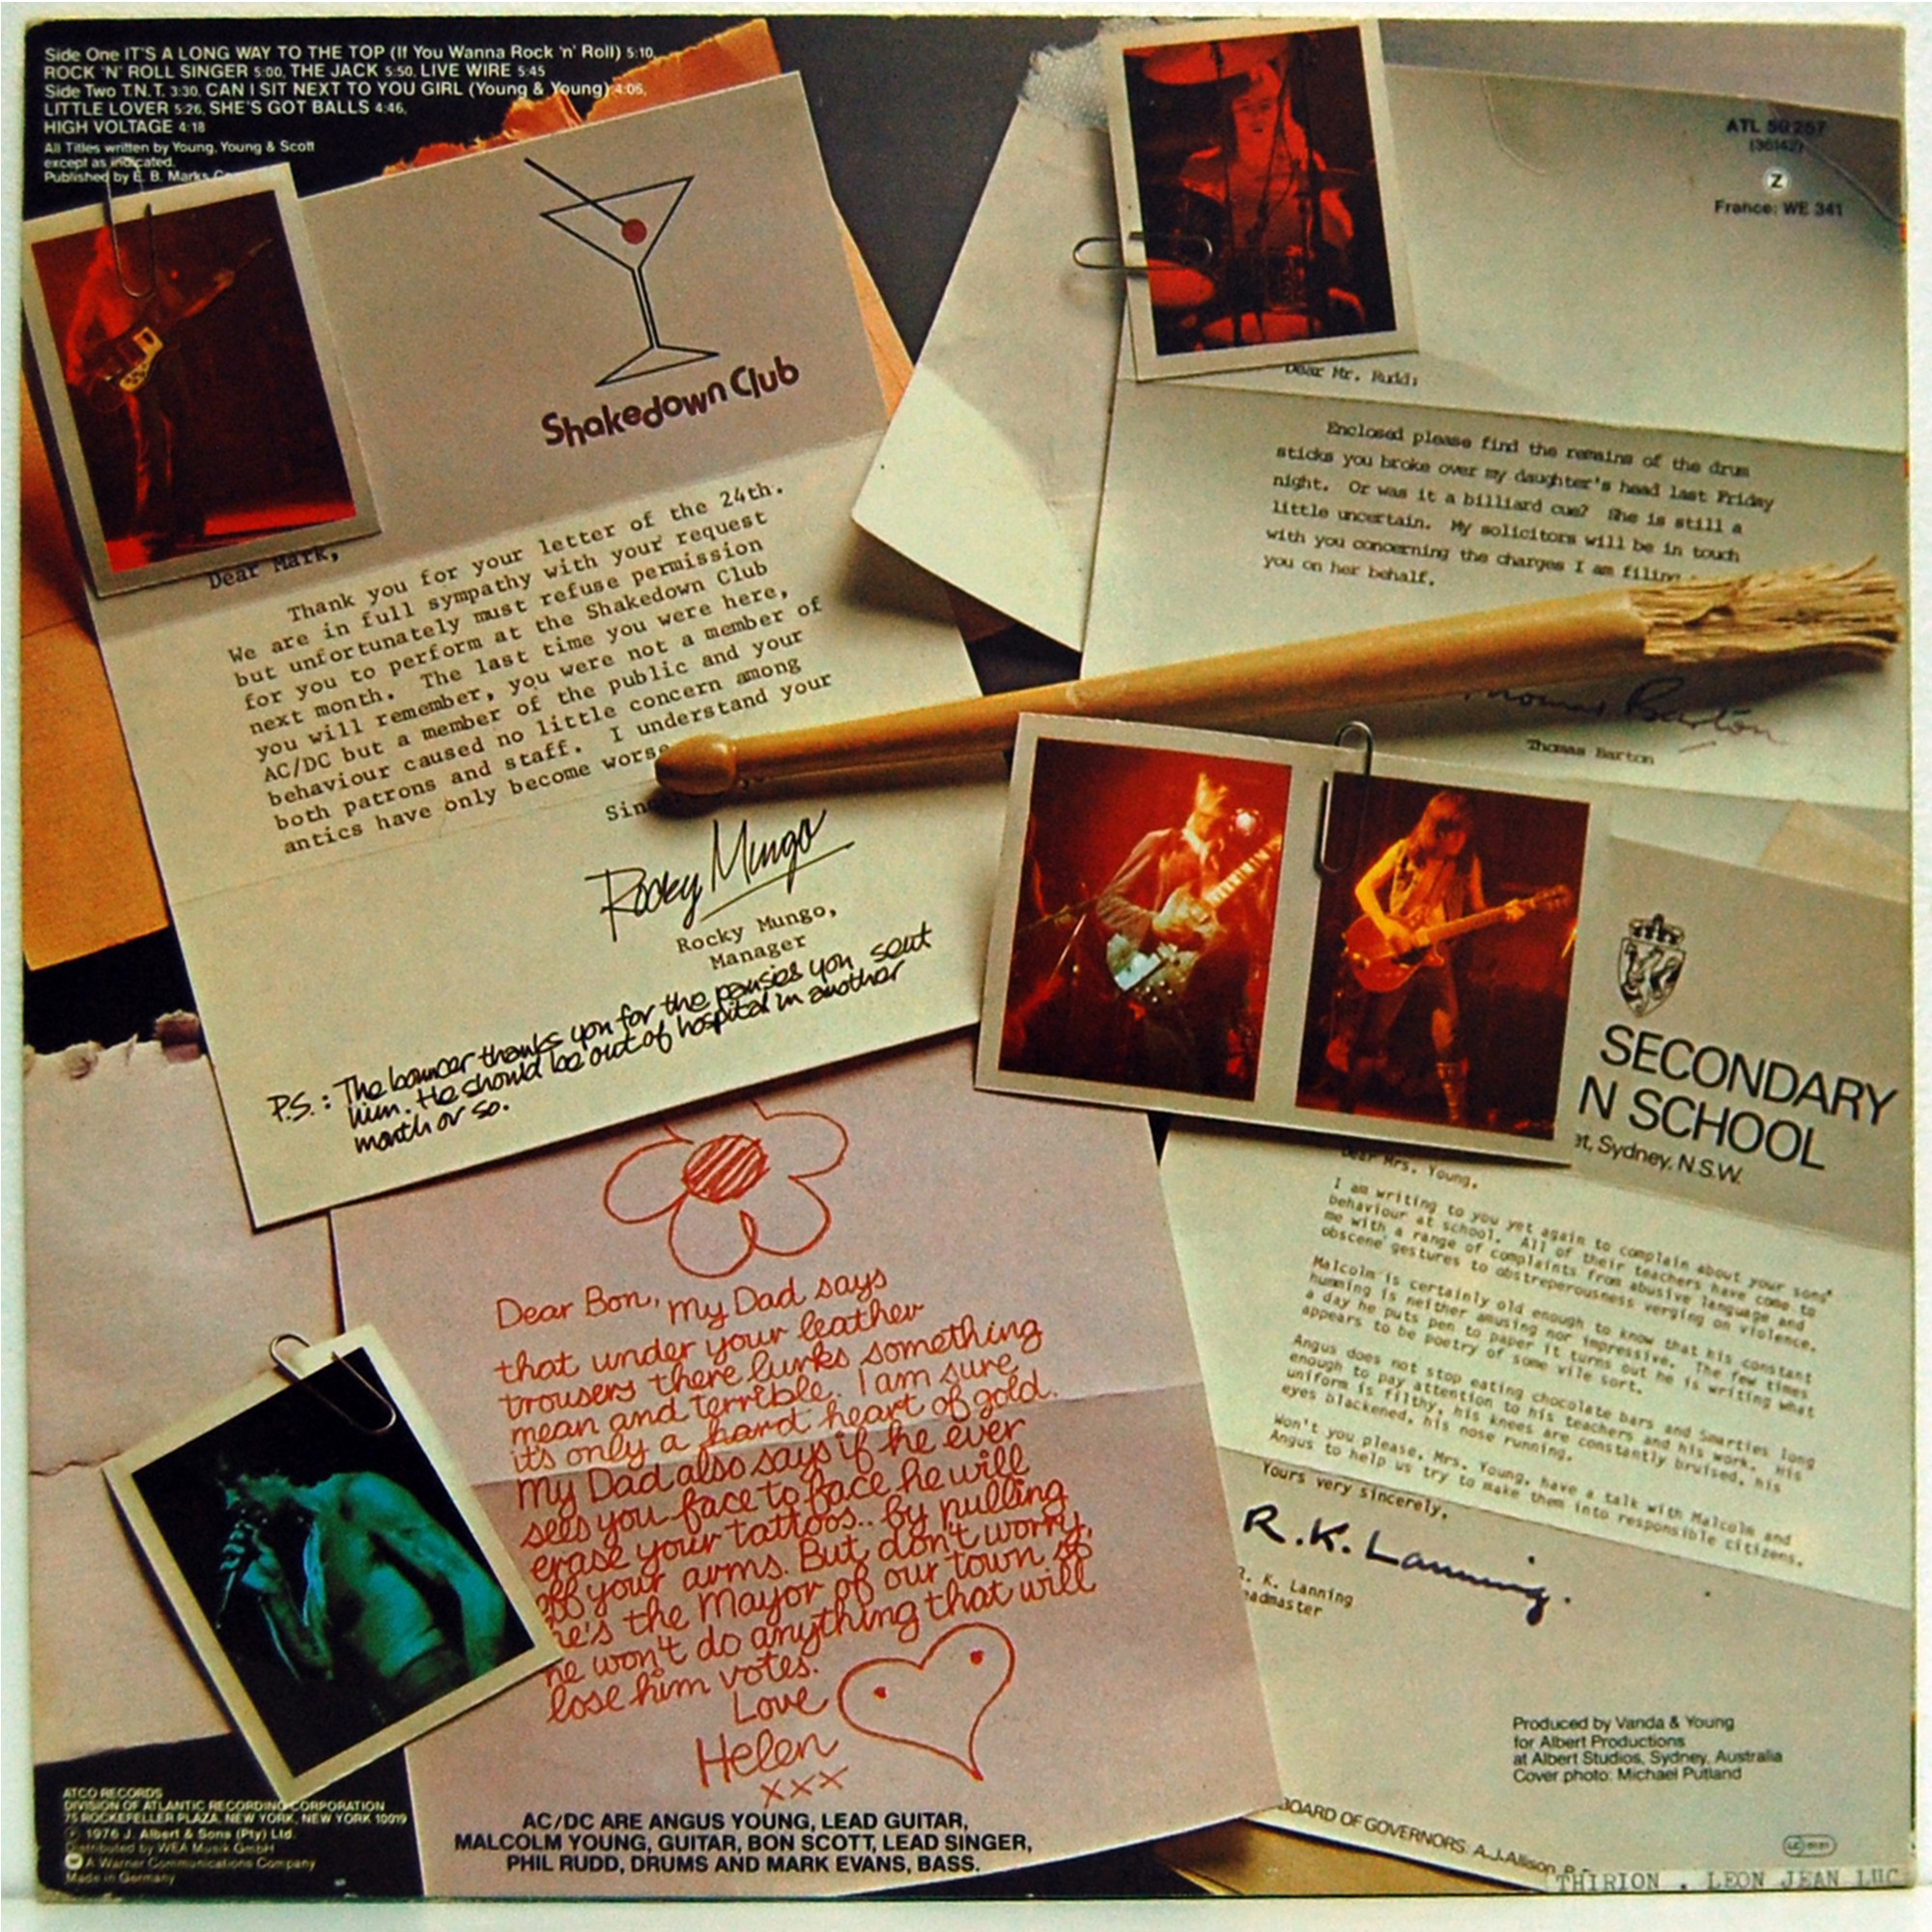 Side One IT'S A LONG WAY TO THE TOP (If You Wanna Rock 'n' Roll) 5:10,
ROCK 'N' ROLL SINGER 5:00, THE JACK 5:50, LIVE WIRE 5:45
Side Two T.N.T. 3:30, CAN I SIT NEXT TO YOU GIRL (Young & Young) 4:06,
LITTLE LOVER 5:26, SHE'S GOT BALLS 4:46,
HIGH VOLTAGE 4:18
All Titles written by Young, Young & Scott
except as indicated.
Published by E. B. Marks
Shakedown Club
Dear Mark,
Thank you for your letter of the 24th.
We are in full sympathy with your request
but unfortunately must refuse permission
for you to perform at the Shakedown Club
next month. The last time you were here,
you will remember, you were not a member of
AC/DC but a member of the public and your
behaviour caused no little concern among
both patrons and staff. I understand your
antics have only become worse
Rocky Mungo
Rocky Mungo,
Manager
P.S.: The bouncer thanks you for the pansies you sent
him. He should be out of hospital in another
month or so.
ATL 50 257
(36142)
Z
France: WE 341
Dear Mr. Rudd:
Enclosed please find the remains of the drum
sticks you broke over my daughter's head last Friday
night. Or was it a billiard cue? She is still a
little uncertain. My solicitors will be in touch
with you concerning the charges I am filing
you on her behalf.
Thomas Barton
Thomas Barton
SECONDARY
N SCHOOL
et, Sydney, N.S.W.
Dear Mrs. Young,
I am writing to you yet again to complain about your sons'
behaviour at school. All of their teachers have come to
me with a range of complaints from abusive language and
obscene gestures to obstreperousness verging on violence.
Malcolm is certainly old enough to know that his constant
humming is neither amusing nor impressive. The few times
a day he puts pen to paper it turns out he is writing what
appears to be poetry of some vile sort.
Angus does not stop eating chocolate bars and Smarties long
enough to pay attention to his teachers and his work. His
uniform is filthy, his knees are constantly bruised, his
eyes blackened, his nose running.
Won't you please, Mrs. Young, have a talk with Malcolm and
Angus to help us try to make them into responsible citizens.
Yours very sincerely,
R.K. Lanning.
R. K. Lanning
eadmaster
Dear Bon, My Dad says
that under your leather
trousers there lurks something
mean and terrible. I am sure
it's only a hard heart of gold.
My Dad also says if he ever
sees you face to face he will
erase your tattoos.. by pulling
off your arms. But, don't worry,
he's the Mayor of our town so
he won't do anything that will
lose him votes.
Love
Helen
xxx
AC/DC ARE ANGUS YOUNG, LEAD GUITAR,
MALCOLM YOUNG, GUITAR, BON SCOTT, LEAD SINGER,
PHIL RUDD, DRUMS AND MARK EVANS, BASS.
ATCO RECORDS
DIVISION OF ATLANTIC RECORDING CORPORATION
75 ROCKEFELLER PLAZA, NEW YORK, NEW YORK 10019
℗ 1976 J. Albert & Sons (Pty) Ltd.
Distributed by WEA Musik GmbH
A Warner Communications Company
Made in Germany
Produced by Vanda & Young
for Albert Productions
at Albert Studios, Sydney, Australia
Cover photo: Michael Putland
BOARD OF GOVERNORS: A.J. Allison,
THIRION . LEON JEAN LUC